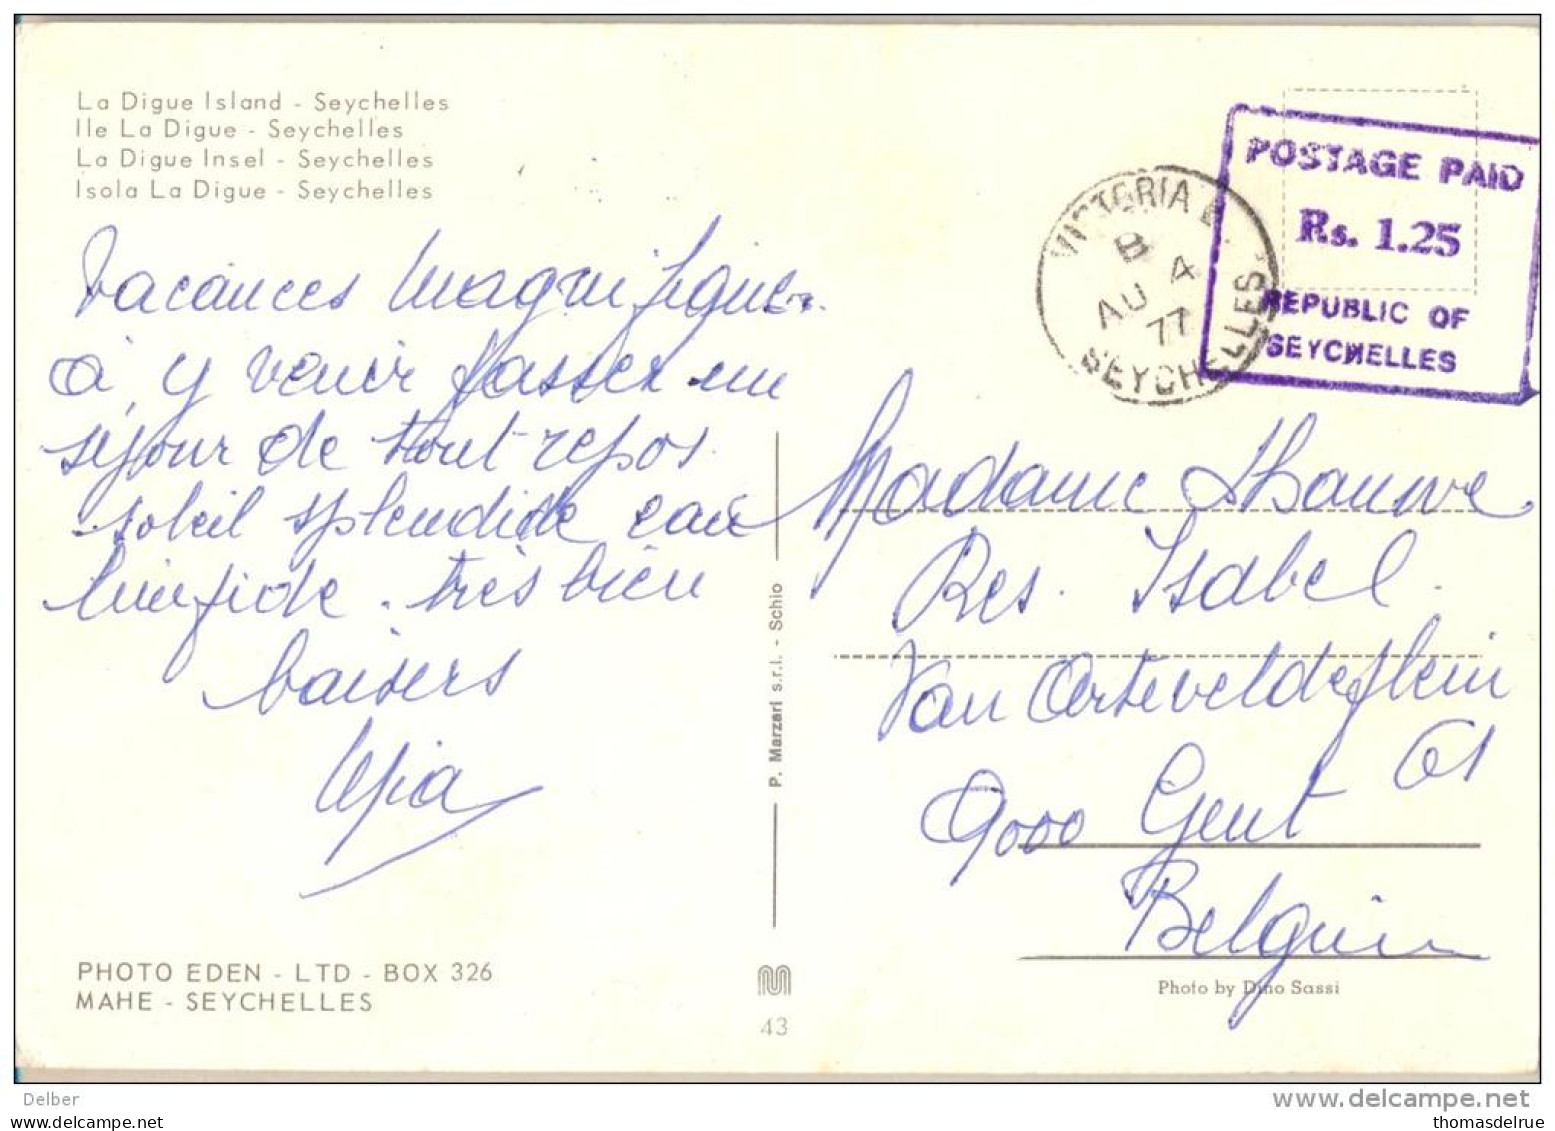 La Digue Island - Seychelles
Ile La Digue - Seychelles
La Digue Insel - Seychelles
Isola La Digue - Seychelles
Vacances magnifiques
à y venir passer un
séjour de tout repos
soleil splendide eau
limpide. très bien
baisers
PHOTO EDEN - LTD - BOX 326
MAHE - SEYCHELLES
P. Marzari s.r.l. - Schio
43
VICTORIA
B 4
AU
77
SEYCHELLES
POSTAGE PAID
Rs. 1.25
REPUBLIC OF
SEYCHELLES
Madame
Res. Isabel.
Van Arteveldeplein
61
9000 Gent
Belgium
Photo by Dino Sassi
Delber
www.delcampe.net
thomasdelrue